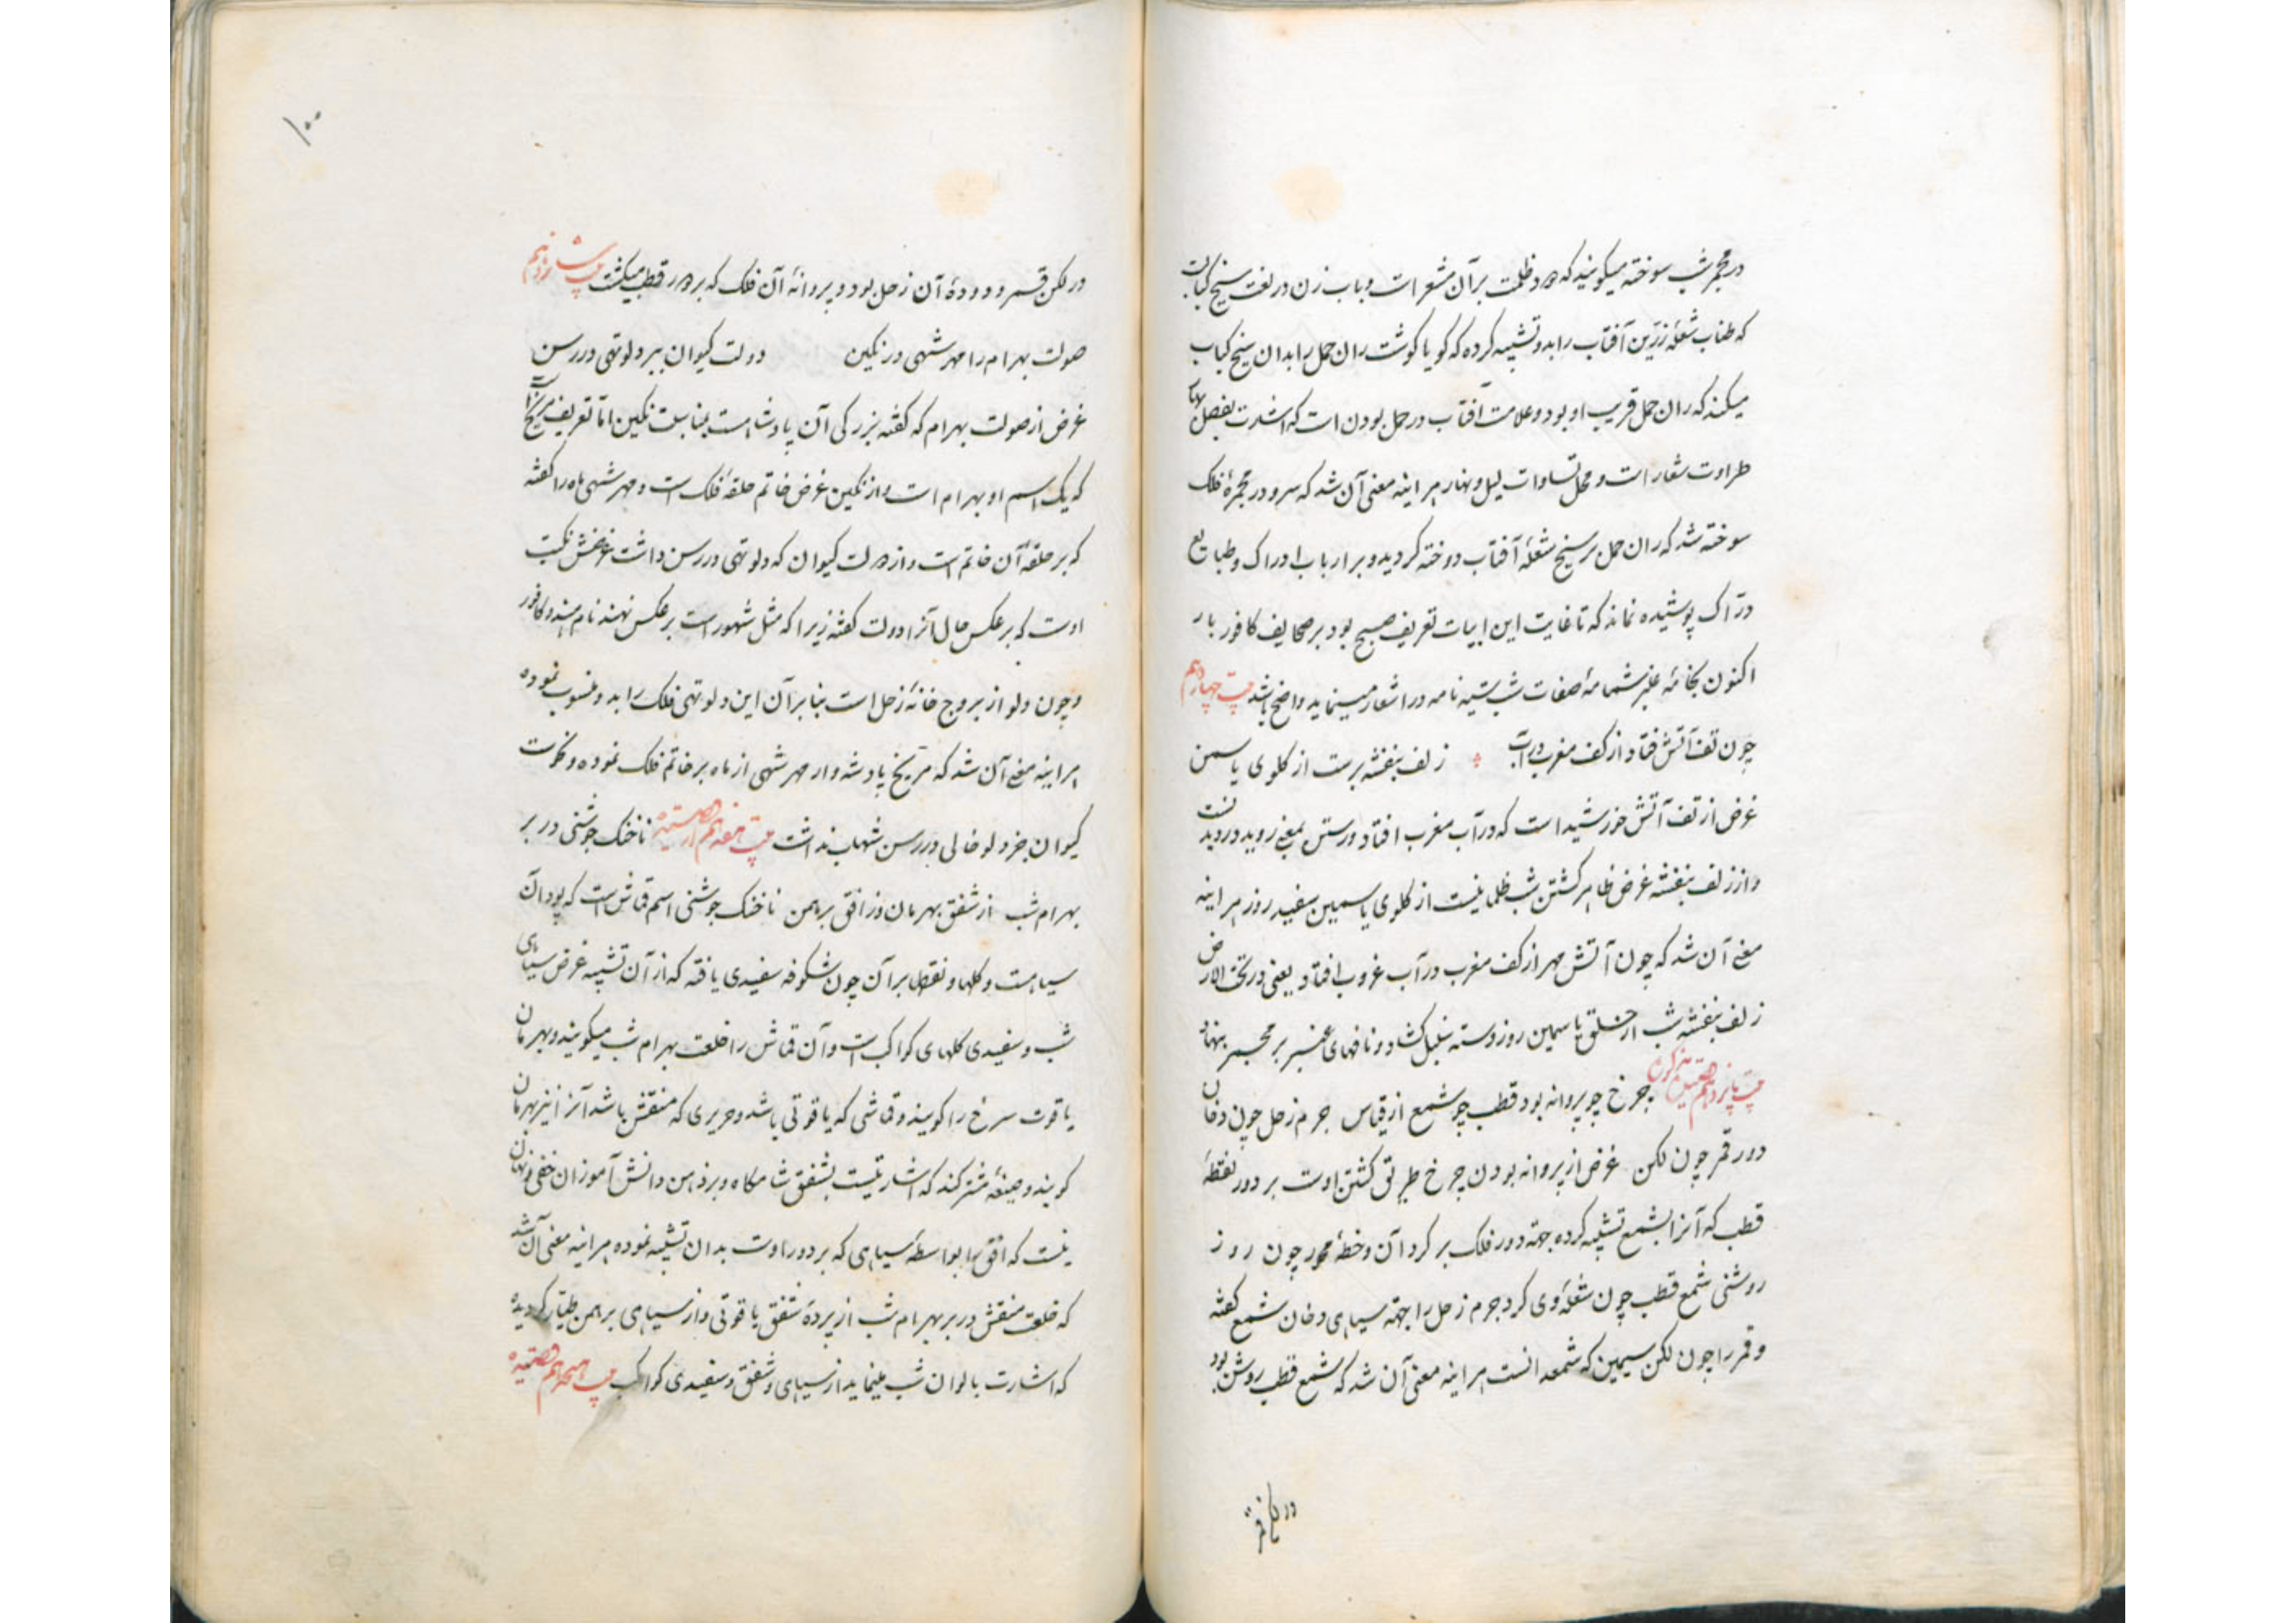 در مجمر شب سوخته میگویند که دود ظلمت برآن مشعر است و باب زن در لغت سیخ کبابست
که طناب شعلهٔ زرین آفتاب را بدو تشبیه کرده که گویا گوشت ران حمل را بدان سیخ کباب
میکند که ران حمل قریب او بود و علامت آفتاب در حمل بودن است که اشارت بفصل
طراوت شعار است و محل تساوات لیل و نهار هراینه معنی آن شد که سرو در مجمرهٔ فلک
سوخته شد که ران حمل بر سیخ شعلهٔ آفتاب دوخته گردید و بر ارباب ادراک و طبایع
درّاک پوشیده نماند که تا غایت این ابیات تعریف صبح بود بر صحایف کافور بار
اکنون بخامهٔ عنبر شمامهٔ صفات شب شبیه نامه در اشعار مینماید واضح باشد بیت چهاردهم
چون تف آتش فتاد از کف مغرب در آب زلف بنفشه برست از گلوی یاسمن
غرض از تف آتش خورشید است که در آب مغرب افتاد و رستن بمعنی روییدنست
و از زلف بنفشه غرض ظاهر گشتن شب ظلمانیست از گلوی یاسمین سفید روز هراینه
معنی آن شد که چون آتش مهر از کف مغرب در آب غروب افتاد یعنی در تحت الارض
زلف بنفشه شب از حلق یاسمین روز دسته سنبل گشاد و نافهای عنبر بر مجمر نهاد
بیت پانزدهم چرخ چو پروانه بود قطب چو شمع از قیاس جرم زحل چون دخان
دور قمر چون لگن غرض از پروانه بودن چرخ طریق گشتن اوست بر دور نقطهٔ
قطب که آنرا بشمع تشبیه کرده بجهة دور فلک بر گرد آن و خطهٔ محور چون روز
روشنی شمع قطب چون شعلهٔ وی گرد جرم زحل را بجهة سیاهی دخان شمع گفته
و قمر را چون لگن سیمین که شمعدانست هراینه معنی آن شد که شمع قطب روشن بود
۱۰۰
در لگن قمر و دودهٔ آن زحل بود و پروانهٔ آن فلک که بر دور قطب میگشت بیت شانزدهم
صولت بهرام را مهر شهی در نگین دولت کیوان ببر دلو تهی در رسن
غرض از صولت بهرام که گفته بزرگی آن پادشاهست بمناسبت نگین امّا تعریف مریخ
که یک اسم او بهرام است و از نگین غرض خاتم حلقهٔ فلک است و مهر شهی ماه را گفته
که بر حلقهٔ آن خاتم است و از دولت کیوان که دلو تهی در رسن داشت غرضش نکبت
اوست که بر عکس حال آنرا دولت گفته زیرا که مثل مشهور است بر عکس نهند نام هندو کافور
و چون دلو از بروج خانهٔ زحل است بنا بر آن این دلو تهی فلک را بدو منسوب نموده
هراینه معنی آن شد که مریخ پادشه وار مهر شهی از ماه بر خاتم فلک نموده
کیوان بجز دلو خالی در رسن شهاب نداشت بیت هفدهم ناخنک جوشنی در بر
بهرام شب از شفق بهرمان وز افق برهمن ناخنک جوشنی اسم قماش است که پود آن
سیاهست و گلها و نقطها بر آن چون شکوفه سفیدی یافته که از آن تشبیه غرض سیاهی
شب و سفیدی گلهای کواکب است و آن قماش را خلعت بهرام شب میگویند و بهرمان
یاقوت سرخ را گویند و قماشی که یاقوتی باشد و حریری که منقش باشد آنرا نیز بهرمان
گویند و صیغهٔ مشترکند که اشارتیست بشفق شامگاه و بر ذهن دانش آموزان خفی و نهان
نیست که افق را بواسطهٔ سیاهی که بر دور اوست بدان تشبیه نموده هراینه معنی آن شد
که خلعت منقش در بر بهرام شب از پردهٔ شفق یاقوتی و از سیاهی برهمن طیّار گردیده
که اشارت بالوان شب مینماید از سیاهی و شفق و سفیدی کواکب بیت هجدهم